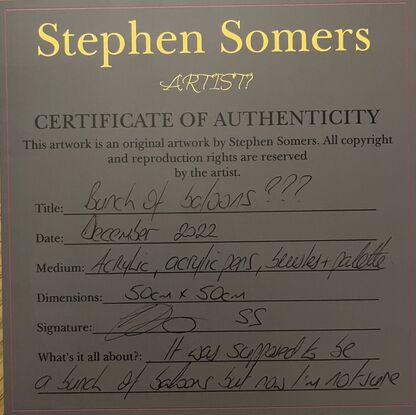 Stephen Somers
ARTIST?
CERTIFICATE OF AUTHENTICITY
This artwork is an original artwork by Stephen Somers. All copyright
and reproduction rights are reserved
by the artist.
Title: Bunch of baloons???
Date: December 2022
Medium: Acrylic, acrylic pens, brushes + palette
Dimensions: 50cm x 50cm
Signature: SS
What's it all about?: It was supposed to be
a bunch of baloons but now I'm not sure